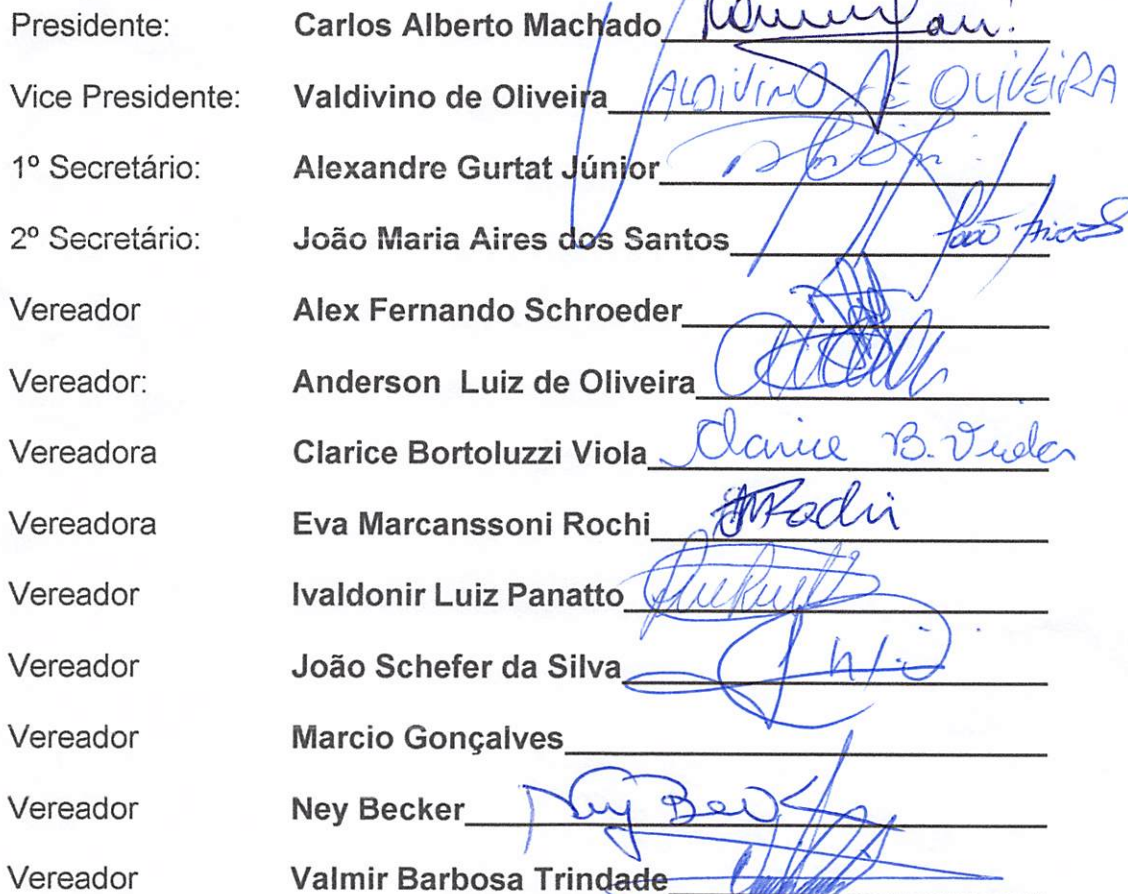 Presidente: Carlos Alberto Machado
Vice Presidente: Valdivino de Oliveira VALDIVINO DE OLIVEIRA
1º Secretário: Alexandre Gurtat Júnior
2º Secretário: João Maria Aires dos Santos João Aires
Vereador Alex Fernando Schroeder
Vereador: Anderson Luiz de Oliveira
Vereadora Clarice Bortoluzzi Viola Clarice B. Viola
Vereadora Eva Marcanssoni Rochi
Vereador Ivaldonir Luiz Panatto
Vereador João Schefer da Silva
Vereador Marcio Gonçalves
Vereador Ney Becker Ney Bec
Vereador Valmir Barbosa Trindade